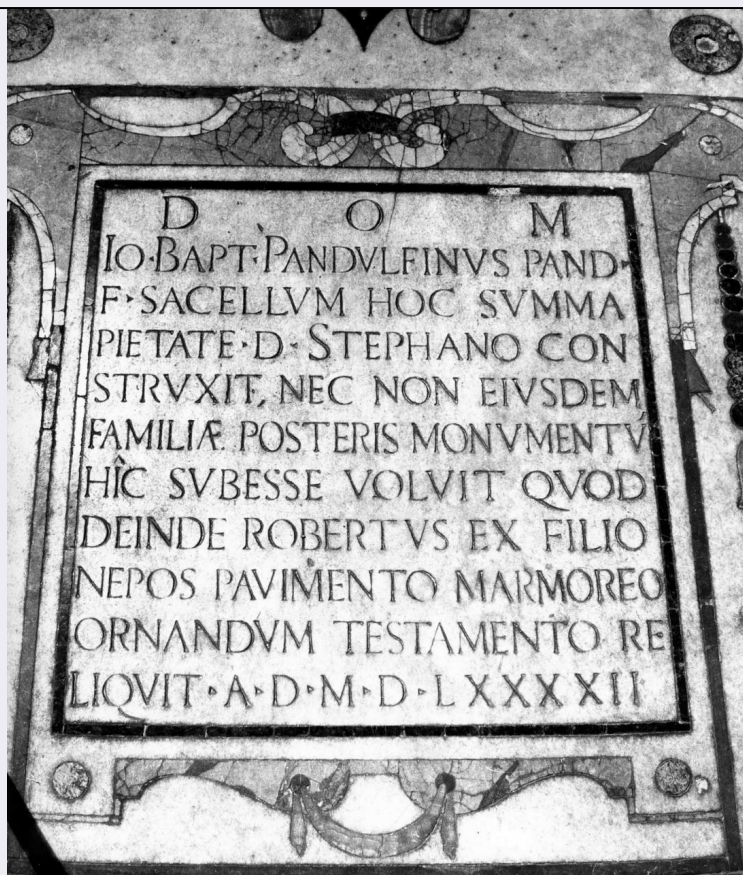 D O M
IO·BAPT·PANDVLFINVS PAND·
F·SACELLVM HOC SVMMA
PIETATE·D·STEPHANO CON
STRVXIT, NEC NON EIVSDEM
FAMILIÆ POSTERIS MONVMENTV̄
HÎC SVBESSE VOLVIT QVOD
DEINDE ROBERTVS EX FILIO
NEPOS PAVIMENTO MARMOREO
ORNANDVM TESTAMENTO RE
LIQVIT·A·D·M·D·LXXXXII